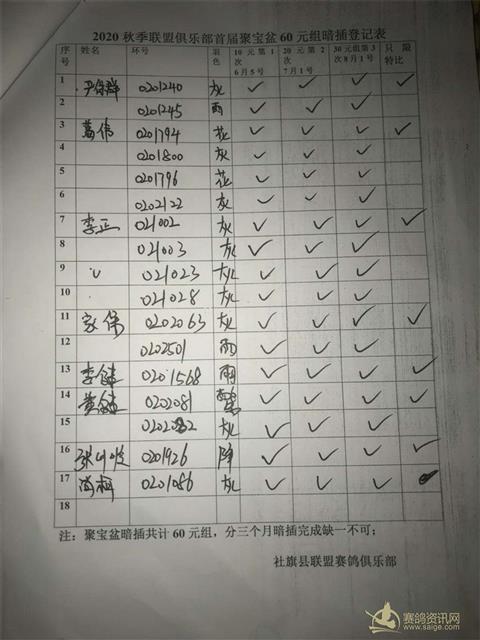 2020 秋季联盟俱乐部首届聚宝盆 60 元组暗插登记表
序号 姓名 环号 羽色 10 元第1次6月5号 20 元第2次7月1号 30元组第3次8月1号 只限特比
1 0201240 灰 ✓ ✓ ✓ ✓
2 0201245 雨 ✓ ✓ ✓
3 葛伟 0201794 花 ✓ ✓ ✓ ✓
4 0201800 灰 ✓ ✓ ✓
5 0201796 花 ✓ ✓ ✓
6 0202122 灰 ✓ ✓ ✓
7 李正 021002 灰 ✓ ✓ ✓ ✓
8 021003 灰 ✓ ✓ ✓
9 021023 灰 ✓ ✓ ✓
10 021028 灰 ✓ ✓ ✓
11 家保 0202063 灰 ✓ ✓ ✓ ✓
12 0202501 雨 ✓ ✓ ✓
13 李健 0201568 雨 ✓ ✓ ✓ ✓
14 0202081 ✓ ✓ ✓ ✓
15 灰 ✓ ✓ ✓
16 0201926 绛 ✓ ✓ ✓ ✓
17 0201086 灰 ✓ ✓ ✓
18
注：聚宝盆暗插共计 60 元组，分三个月暗插完成缺一不可；
社旗县联盟赛鸽俱乐部
赛鸽资讯网
www.saige.com